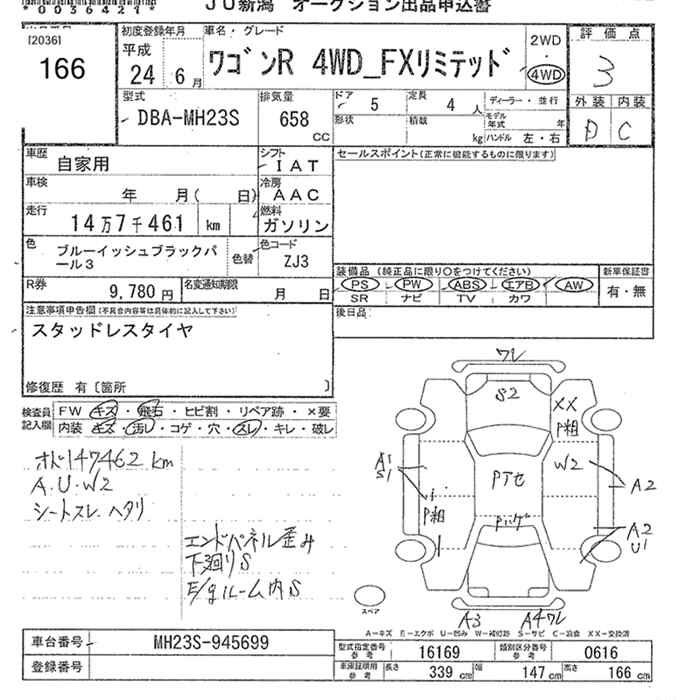 *0036421*
JU新潟 オークション出品申込書
12036I
166
初度登録年月
平成
24年 6月
車名・グレード
ワゴンR 4WD_FXリミテッド
2WD
・
4WD
評価点
3
外装 内装
D C
型式
DBA-MH23S
排気量
658
CC
ドア 5
定員 4人
ディーラー・並行
形状
積載 kg
モデル年式 年
ハンドル 左・右
車歴
自家用
シフト
IAT
セールスポイント(正常に機能するものに限ります)
車検
年 月( 日)
冷房
AAC
走行
14万7千461 km
燃料
ガソリン
色
ブルーイッシュブラックパール3
色替
色コード
ZJ3
R券
9,780円
名変通知期限
月 日
装備品(純正品に限り○をつけてください)
PS・PW・ABS・エアB・AW
SR ナビ TV カワ
新車保証書
有・無
後日品
注意事項申告欄(不具合内容等は具体的に記入して下さい)
スタッドレスタイヤ
修復歴 有〔箇所 〕
検査員記入欄
FW キズ・飛石・ヒビ割・リペア跡・×要
内装 キズ・汚レ・コゲ・穴・スレ・キレ・破レ
オド147462km
A.U.W2
シートスレ.ヘタリ
エンドパネル歪み
下廻りS
E/gルーム内S
ワレ
S2
XX
P粗
A1
S1
W2
Pアセ
A2
P粗
Pハゲ
A2
U1
スペア
A3
A4ワレ
A－キズ E－エクボ U－凹み W－補修跡 S－サビ C－腐食 XX－交換済
車台番号
MH23S-945699
登録番号
型式指定番号 参考
16169
類別区分番号 参考
0616
車庫証明用 参考
長さ 339cm
幅 147cm
高さ 166cm